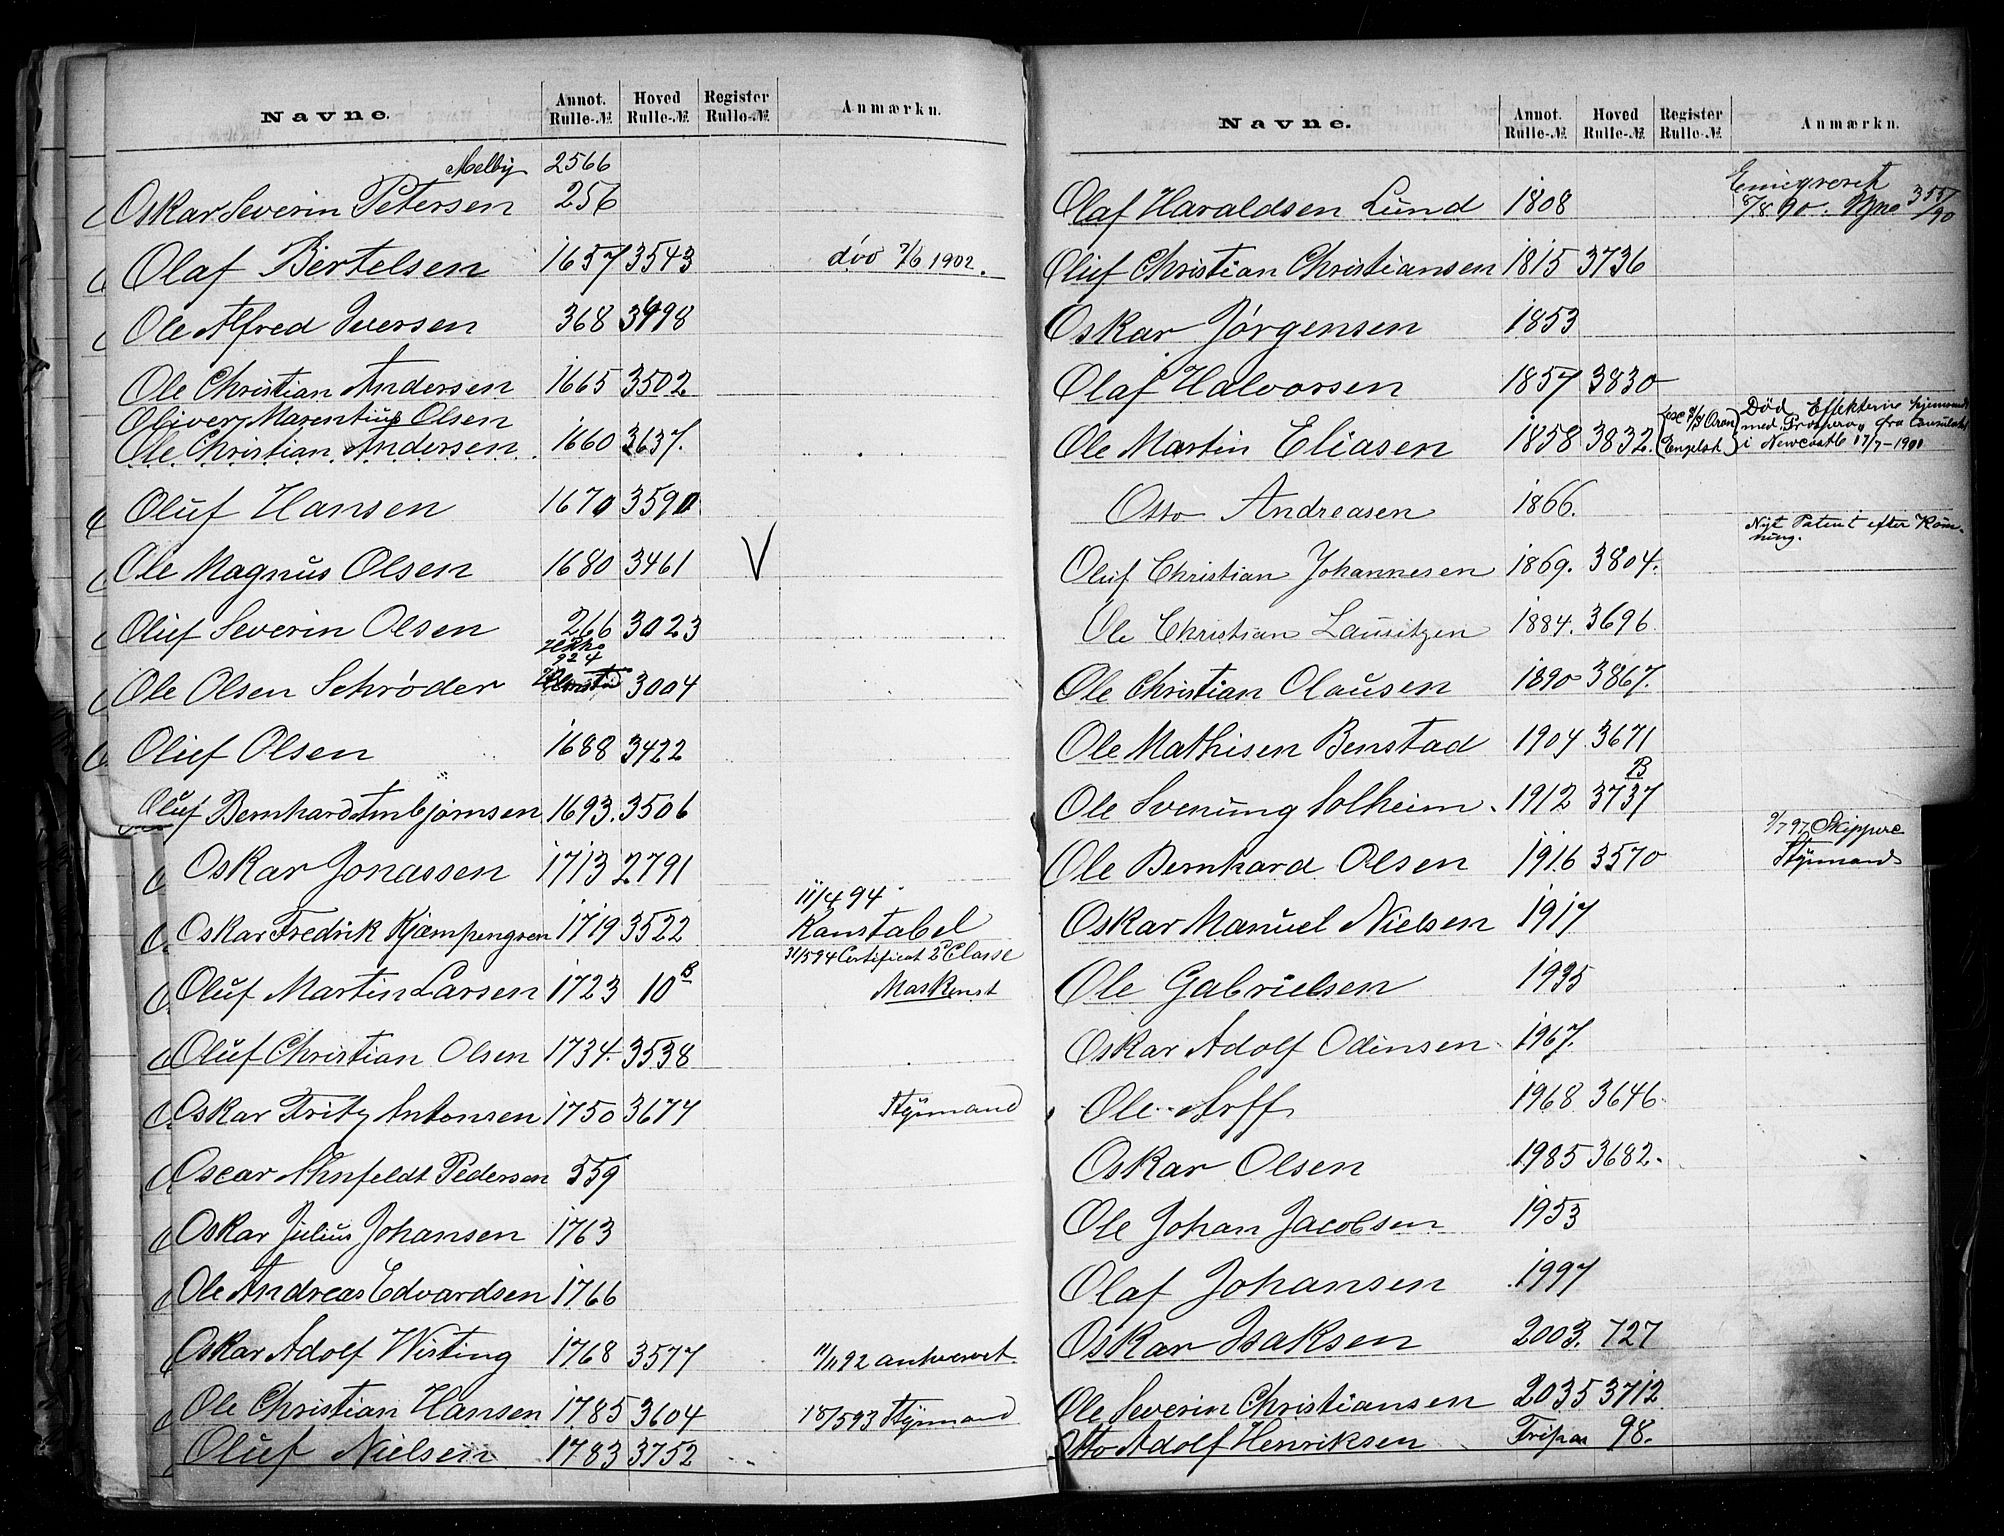 Navne. Annot. Rulle-№ Hoved Rulle-№ Register Rulle-№ Anmærkn.
Melby 2566
Oskar Severin Petersen 256
Olaf Bertelsen 1657 3543 död 7/6 1902.
Ole Alfred Iversen 368 3998
Ole Christian Andersen 1665 3502
Oliver Marentius Olsen
Ole Christian Andersen. 1660 3637.
Oluf Hansen 1670 3590
Ole Magnus Olsen 1680 3461 V
Oluf Severin Olsen 266 3023
924
Ole Olsen Schrøder 3004
Oluf Olsen 1688 3422
Oluf Bernhard Arnbjørnsen 1693. 3506
Oskar Jonassen 1713 2791
11/4 94
Oskar Fredrik Kjæmpengren 1719 3522 Konstabel
31/5 94 Certificat 2 Classe
Oluf Martin Larsen 1723 10 B Maskinst
Oluf Christian Olsen 1734. 3538
Oskar Fritz Antonsen 1750 3677 Styrmand
Oscar Ahnfeldt Pedersen 559
Oskar Julius Johansen 1763
Ole Andreas Edvardsen 1766
Oskar Adolf Wisting 1768 3577 11/11 92
Ole Christian Hansen 1785 3604 18/5 93 Styrmand
Oluf Nielsen 1783 3752
Navne. Annot. Rulle-№ Hoved Rulle-№ Register Rulle-№ Anmærkn.
Emigreret
Olaf Haraldsen Lund 1808 8/8 90. 355/90
Oluf Christian Christiansen 1815 3736
Oskar Jørgensen 1853
Olaf Halvorsen 1857 3830
Død Effekterne hjemsendt
Ole Martin Eliasen 1858 3832. Engelsk med "Prospero" fra Consulatet
i Newcastle 17/7-1901
Otto Andreasen 1866.
Nyt Patent efter Røm-
ning.
Oluf Christian Johannesen 1869. 3804.
Ole Christian Lausitzen 1884. 3696
Ole Christian Olausen 1890 3867.
Ole Mathisen Benstad 1904 3671
B
Ole Svenung Solheim. 1912 3737
9/7 97 Skipper
Ole Bernhard Olsen 1916 3570 Styrmand
Oskar Manuel Nielsen 1917
Ole Gabrielsen 1935
Oskar Adolf Odinsen 1967.
Ole Arff 1968 3646
Oskar Olsen 1985 3682.
Ole Johan Jacobsen 1953
Olaf Johansen 1997
Oskar Isaksen 2003. 727
Ole Severin Christiansen 2035 3712
Otto Adolf Henriksen 98.